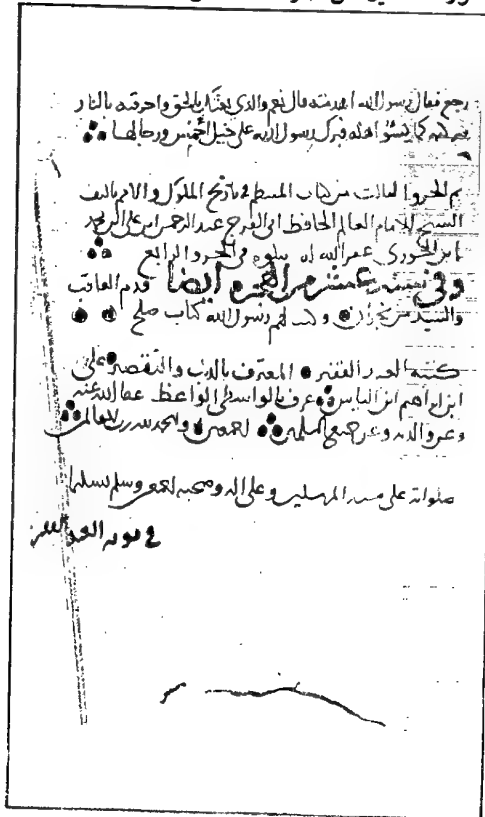 رجع فقال رسول الله اهدمته قال نعم والذي بعثك بالحق واحرقته بالنار
كما يسوا اهله فبرك رسول الله على خيل أحمس ورجالها
تم الجزو الثالث من كتاب المنتظم في تاريخ الملوك والامم تاليف
الشيخ الامام العالم الحافظ ابي الفرج عبد الرحمن ابن علي ابن محمد
ابن الجوزي غفر الله له يتلوه في الجزو الرابع
وفي سنة عشر من الهجرة ايضا قدم العاقب
والسيد من نجران وكتب لهم رسول الله كتاب صلح
كتبه العبد الفقير المعترف بالذنب والتقصير علي
ابن ابراهيم ابن الياس عرف بالواسطي الواعظ عفا الله عنه
وعن والديه وعن جميع المسلمين اجمعين والحمد لله رب العالمين
صلواته على سيد المرسلين وعلى اله وصحبه اجمعين وسلم تسليما
في نوبة العبد